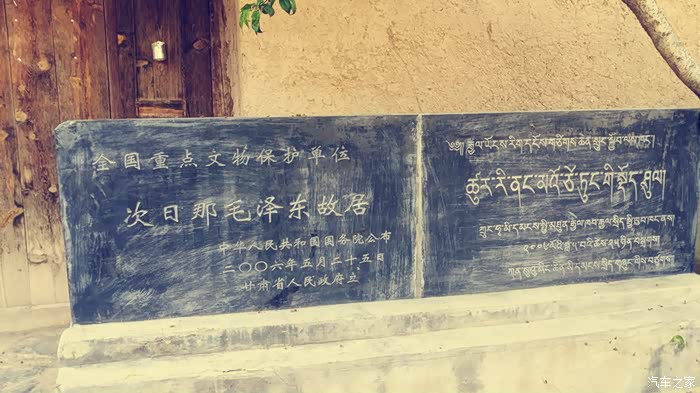 全国重点文物保护单位
次日那毛泽东故居
中华人民共和国国务院公布
二〇〇六年五月二十五日
甘肃省人民政府立
༄༅། རྒྱལ་ཡོངས་རིག་དངོས་གཙོ་གནད་སྲུང་སྐྱོབ་ལས་ཁང་།
ཚུ་རི་ནང་མའོ་ཙེ་ཏུང་གི་སྡོད་ཤུལ།
ཀྲུང་ཧྭ་མི་དམངས་སྤྱི་མཐུན་རྒྱལ་ཁབ་རྒྱལ་སྲིད་སྤྱི་ཁྱབ་ཁང་ནས།
汽车之家